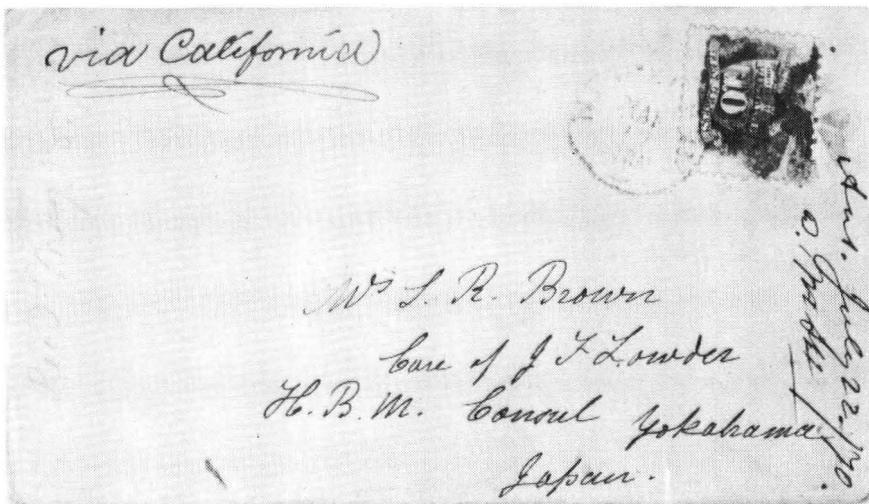 via California
10
Mrs S R. Brown
Care of J F Lowder
H. B. M. Consul Yokahama
Japan.
July 22 /70.